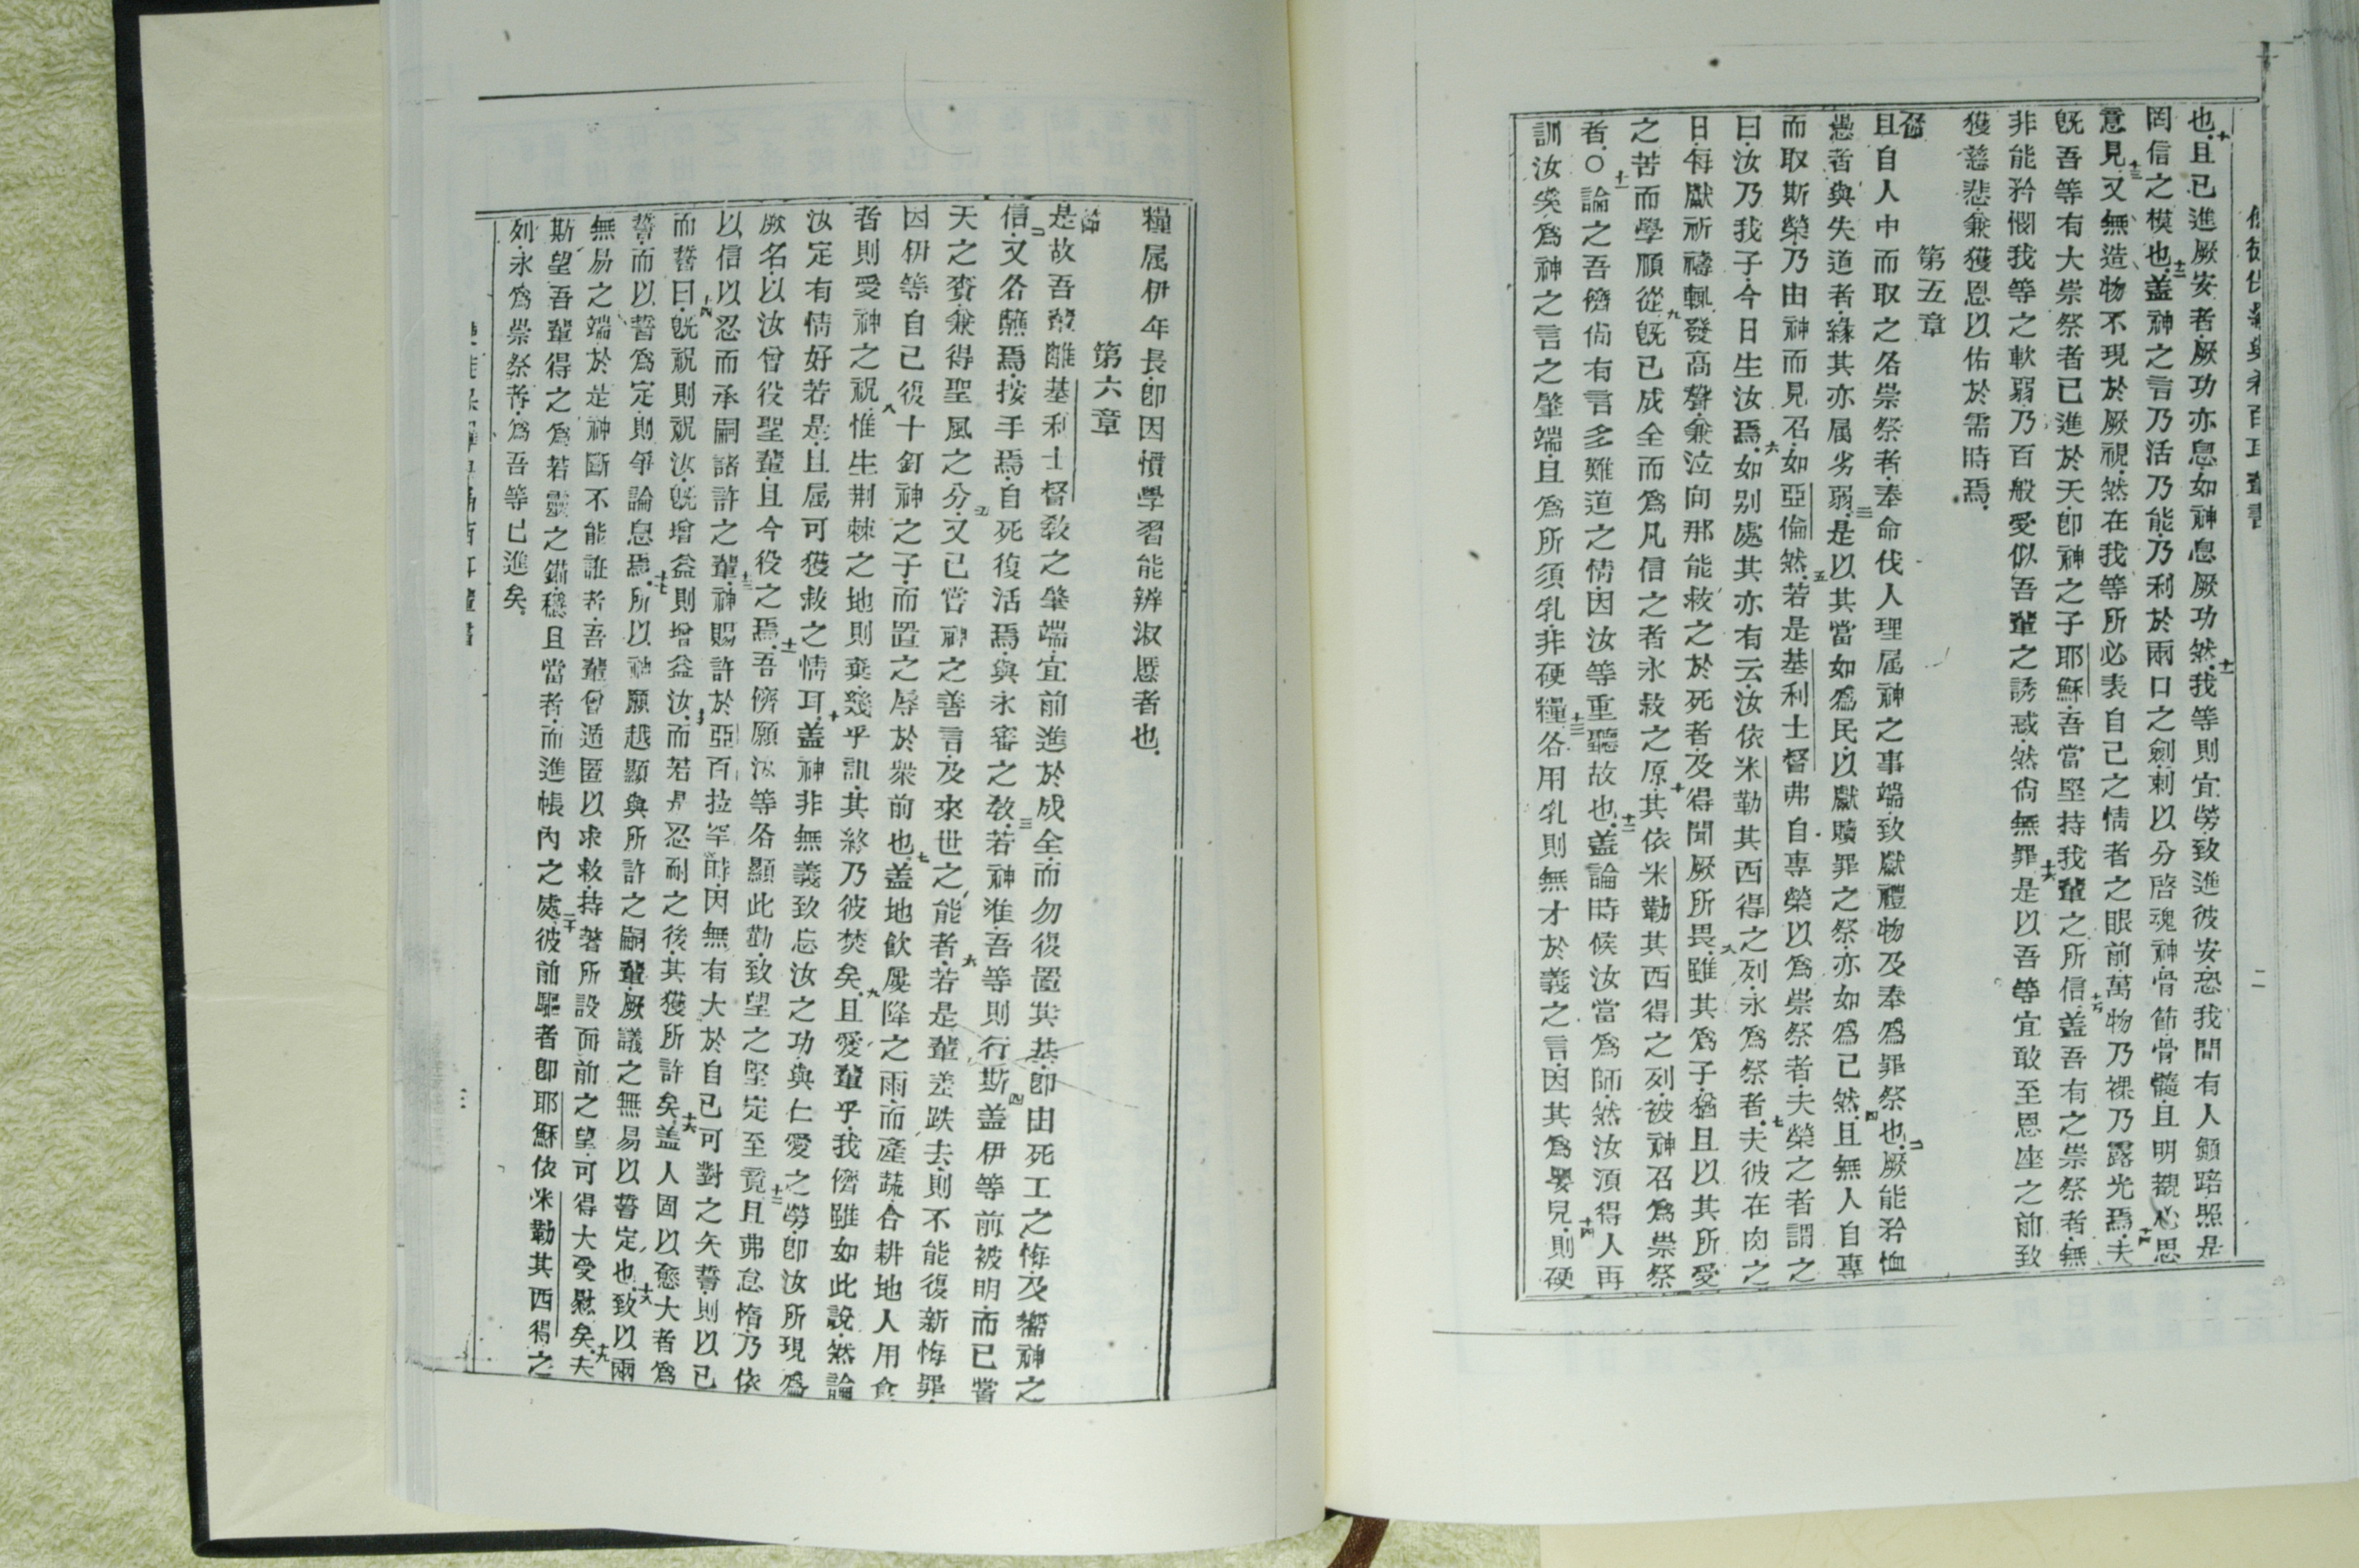 也十且已進厥安者厥功亦息如神息厥功然十一我等則宜勞致進彼安恐我間有人顛踣照是
罔信之模也十二蓋神之言乃活乃能乃利於兩口之劍刺以分啓魂神骨節骨髓且明觀心思
意見十三又無造物不現於厥視然在我等所必表自己之情者之眼前萬物乃裸乃露光焉十四夫
旣吾等有大崇祭者已進於天卽神之子耶穌吾當堅持我輩之所信十五蓋吾有之崇祭者無
非能矜憫我等之軟弱乃百般受似吾輩之誘惑然尙無罪十六是以吾等宜敢至恩座之前致
獲慈悲兼獲恩以佑於需時焉
第五章
且自人中而取之各崇祭者奉命伐人理属神之事端致獻禮物及奉爲罪祭也二厥能矜恤
愚者與失道者緣其亦属劣弱三是以其當如爲民以獻贖罪之祭亦如爲己然四且無人自專
而取斯榮乃由神而見召如亞倫然五若是基利士督弗自專榮以爲崇祭者夫榮之者謂之
曰汝乃我子今日生汝焉六如別處其亦有云汝依米勒其西得之列永爲祭者七夫彼在肉之
日每獻祈禱輒發高聲兼泣向那能救之於死者及得聞厥所畏八雖其爲子猶且以其所受
之苦而學順從九旣已成全而爲凡信之者永救之原十其依米勒其西得之列被神召爲崇祭
者〇十一論之吾儕尙有言多難道之情因汝等重聽故也十二蓋論時候汝當爲師然汝須得人再
訓汝奚爲神之言之肇端且爲所須乳非硬糧十三各用乳則無才於義之言因其爲嬰兒十四則硬
糧属伊年長卽因慣學習能辨淑慝者也
第六章
是故吾輩離基利士督敎之肇端宜前進於成全而勿復置其基卽由死工之悔及嚮神之
信二又各蘸焉按手焉自死復活焉與永審之敎三若神准吾等則行斯四蓋伊等前被明而已嘗
天之賚兼得聖風之分五又已嘗神之善言及來世之能者六若是輩差跌去則不能復新悔罪
因伊等自己復十釘神之子而置之辱於衆前也七蓋地飮屢降之雨而產蔬合耕地人用食
者則愛神之祝八惟生荆棘之地則棄幾乎詛其終乃彼焚矣九且愛輩乎我儕雖如此說然論
汝定有情好若是且属可獲救之情耳十蓋神非無義致忘汝之功與仁愛之勞卽汝所現爲
厥名以汝曾役聖輩且今役之焉十一吾儕願汝等各顯此勤致望之堅定至竟十二且弗怠惰乃依
以信以忍而承嗣諸許之輩十三神賜許於亞百拉罕時因無有大於自己可對之矢誓則以己
而誓曰十四旣祝則祝汝旣增益則增益汝十五而若是忍耐之後其獲所許矣十六蓋人固以愈大者爲
誓而以誓爲定則爭論息焉十七所以神願越顯與所許之嗣輩厥議之無易以誓定也十八致以兩
無易之端於是神斷不能誑者吾輩曾遁匿以求救持著所設面前之望可得大受慰矣十九夫
斯望吾輩得之爲若靈之錨穩且當者而進帳內之處二十彼前驅者卽耶穌依米勒其西得之
列永爲崇祭者爲吾等已進矣
三